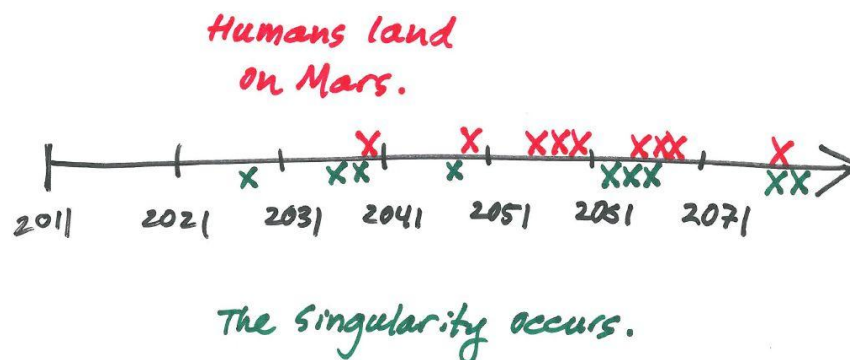 Humans land
on Mars.
X X XXX XXX X
X XX X XXX XX
2011 2021 2031 2041 2051 2061 2071
The Singularity occurs.